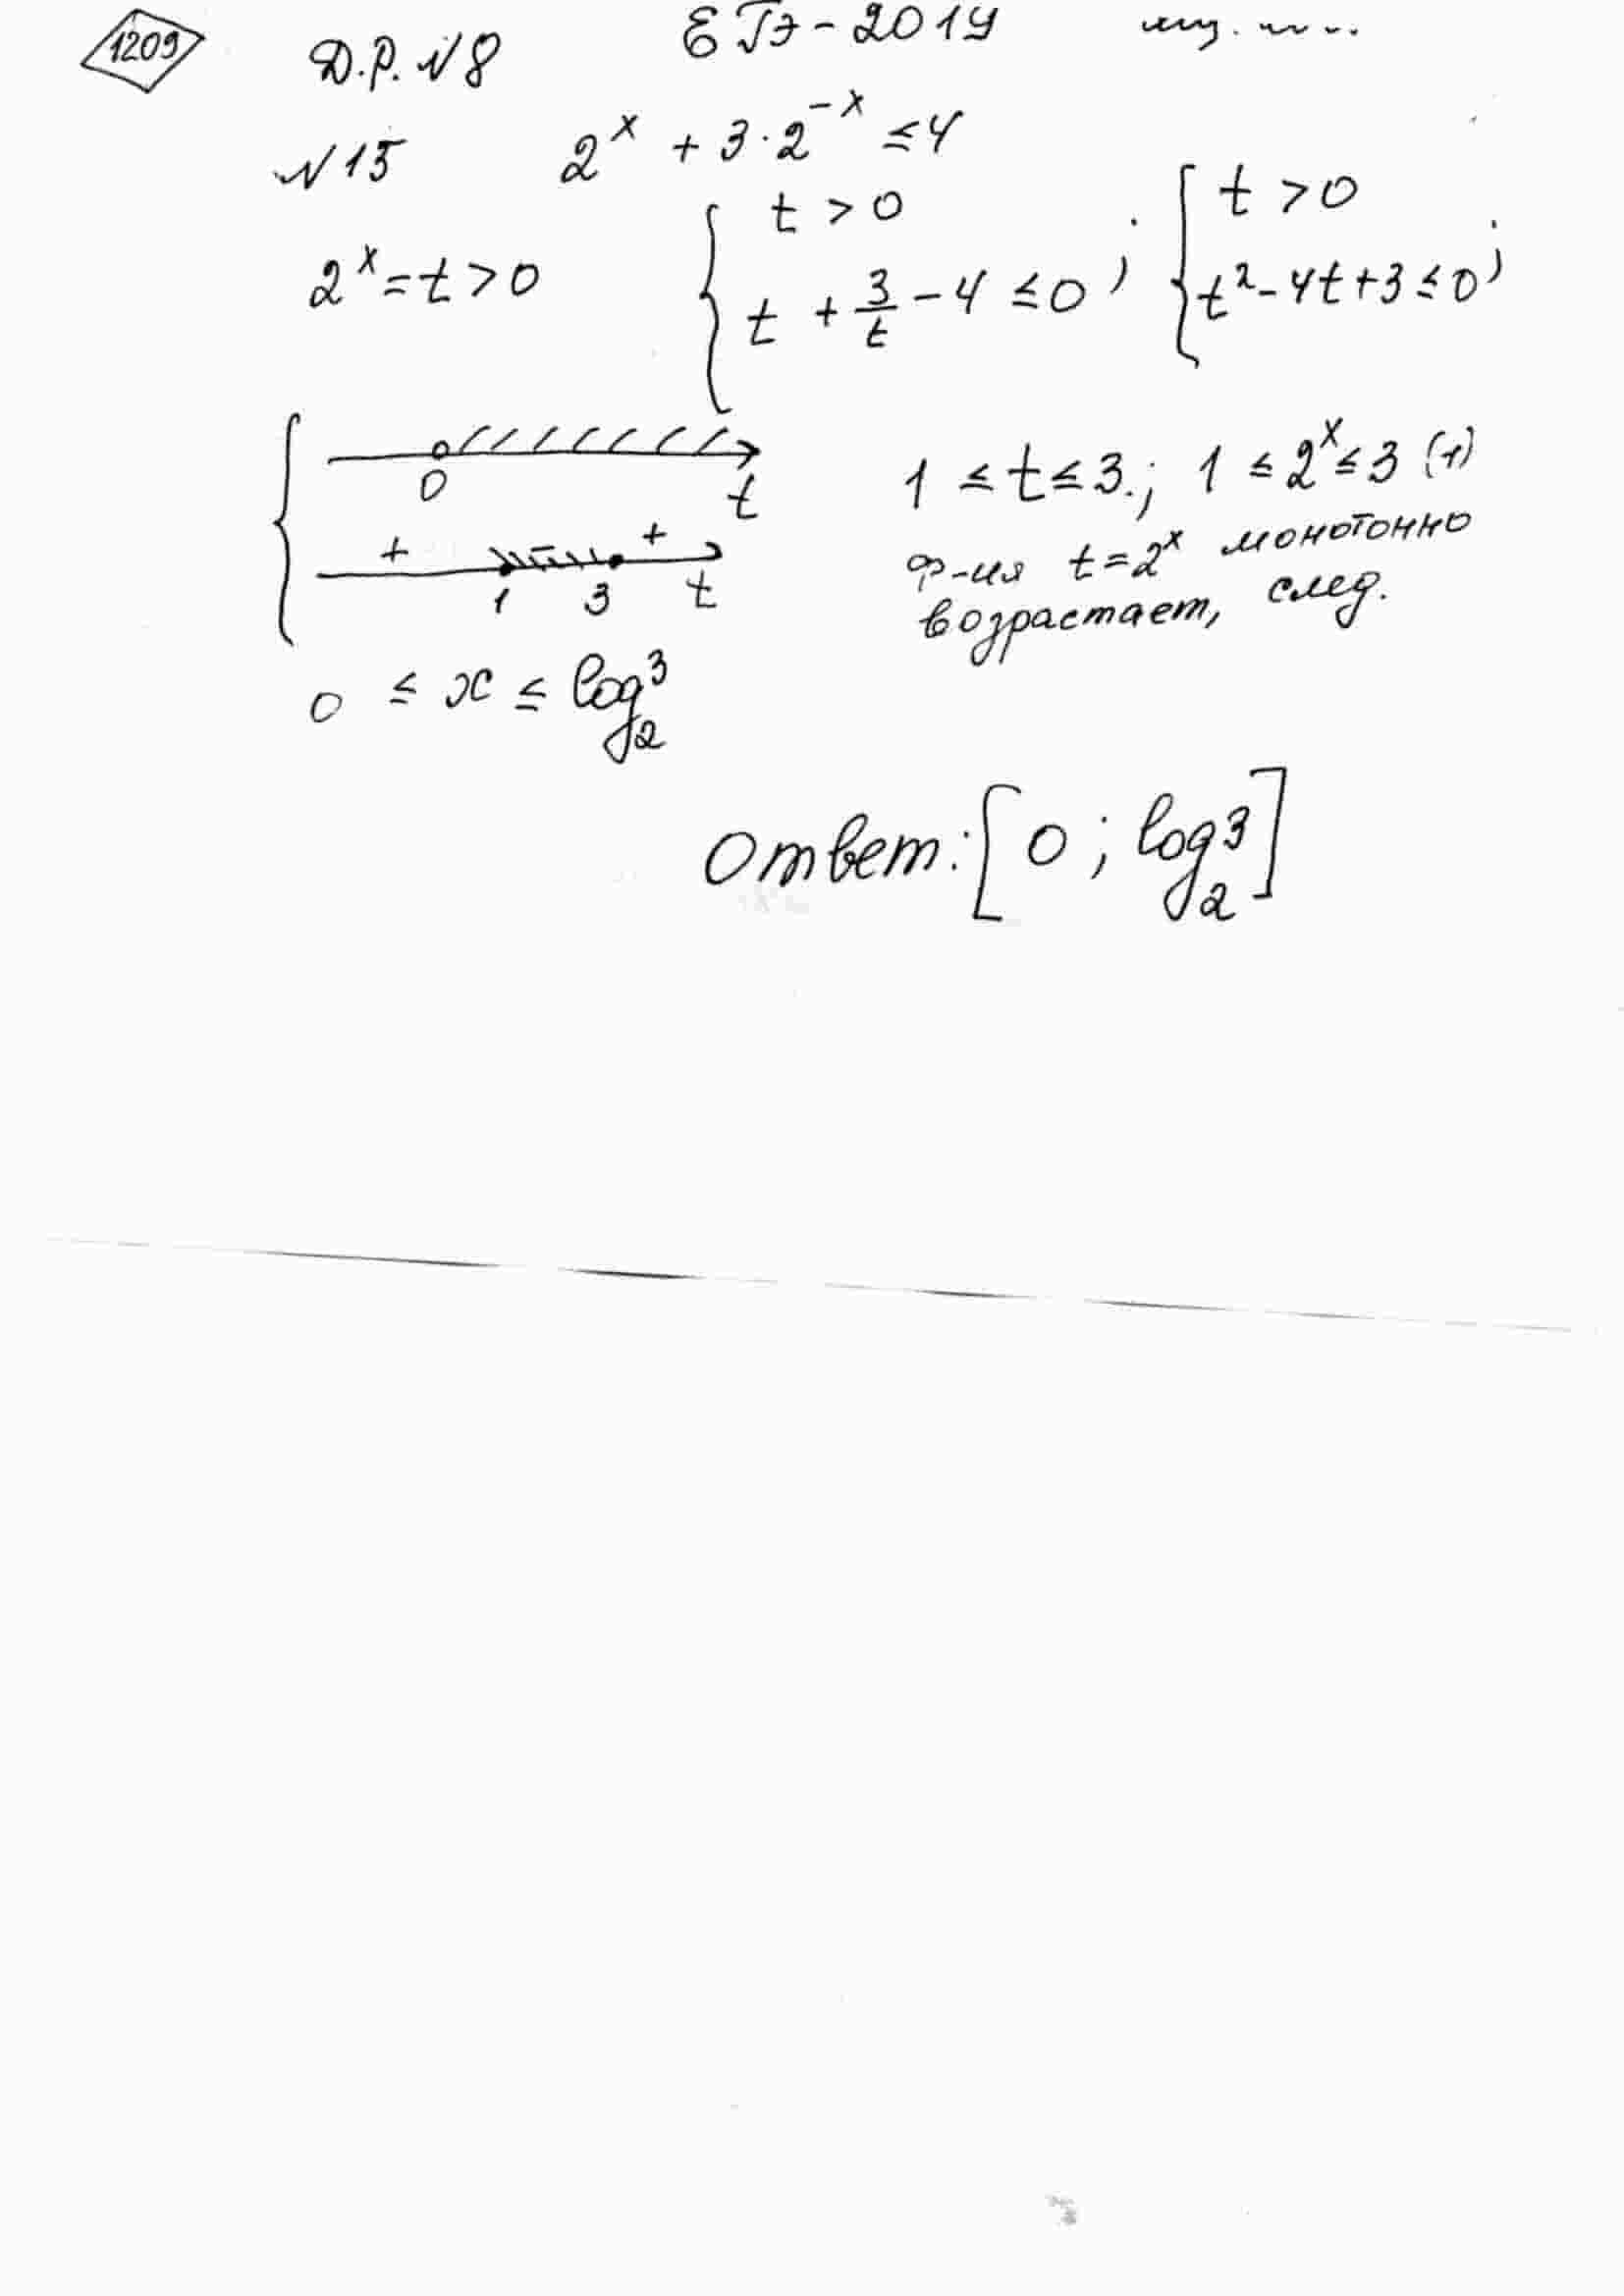 1209
Д.Р. №8 ЕГЭ-2019
№15 2^x + 3·2^{-x} ≤ 4
2^x = t > 0 { t > 0 ; t + 3/t - 4 ≤ 0 ; { t > 0 ; t^2 - 4t + 3 ≤ 0 ;
0 t
+ + 1 3 t
1 ≤ t ≤ 3.; 1 ≤ 2^x ≤ 3 (1)
ф-ия t = 2^x монотонно
возрастает, след.
0 ≤ x ≤ log_2 3
Ответ: [0 ; log_2 3]